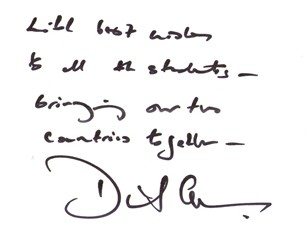 With best wishes
to all the students –
bringing our two
countries together –